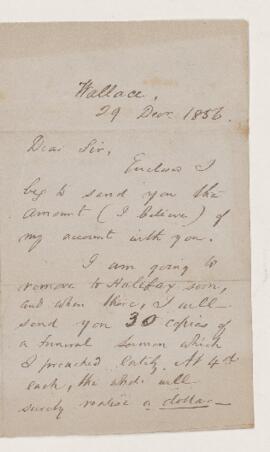 Wallace,
29 Decr. 1856.
Dear Sir,
Enclosed I
beg to send you the
Amount (I believe) of
my account with you.
I am going to
remove to Halifax soon,
and when there, I will
send you 30 copies of
a funeral Sermon which
I preached lately. At 4d
each, the whole will
surely realise a dollar